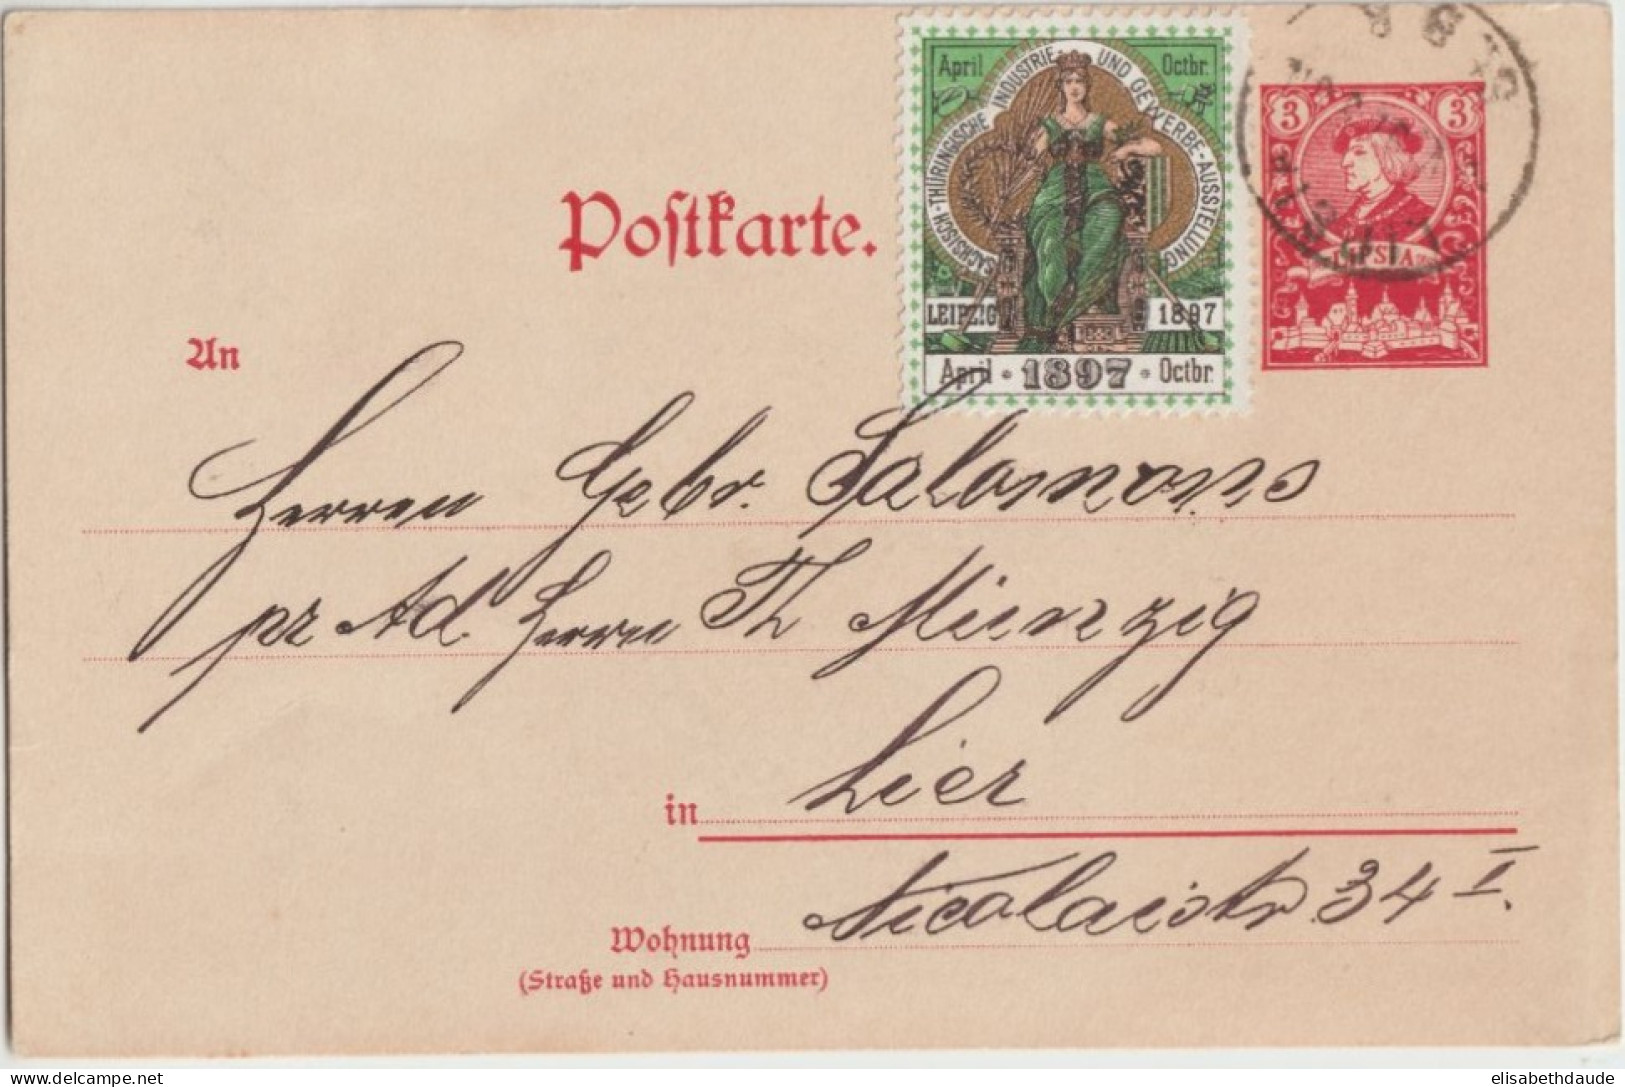 April Octbr.
SÄCHSISCH-THÜRINGISCHE INDUSTRIE UND GEWERBE-AUSSTELLUNG
LEIPZIG 1897
April · 1897 · Octbr.
3 3
LIPSIA
LIPSIA
Postkarte.
An
Herren Gebr. Salomons
pr Ad. Herren Th Münzig
hier
in
Nicolaistr. 34 I.
Wohnung
(Straße und Hausnummer)
elisabethdaude